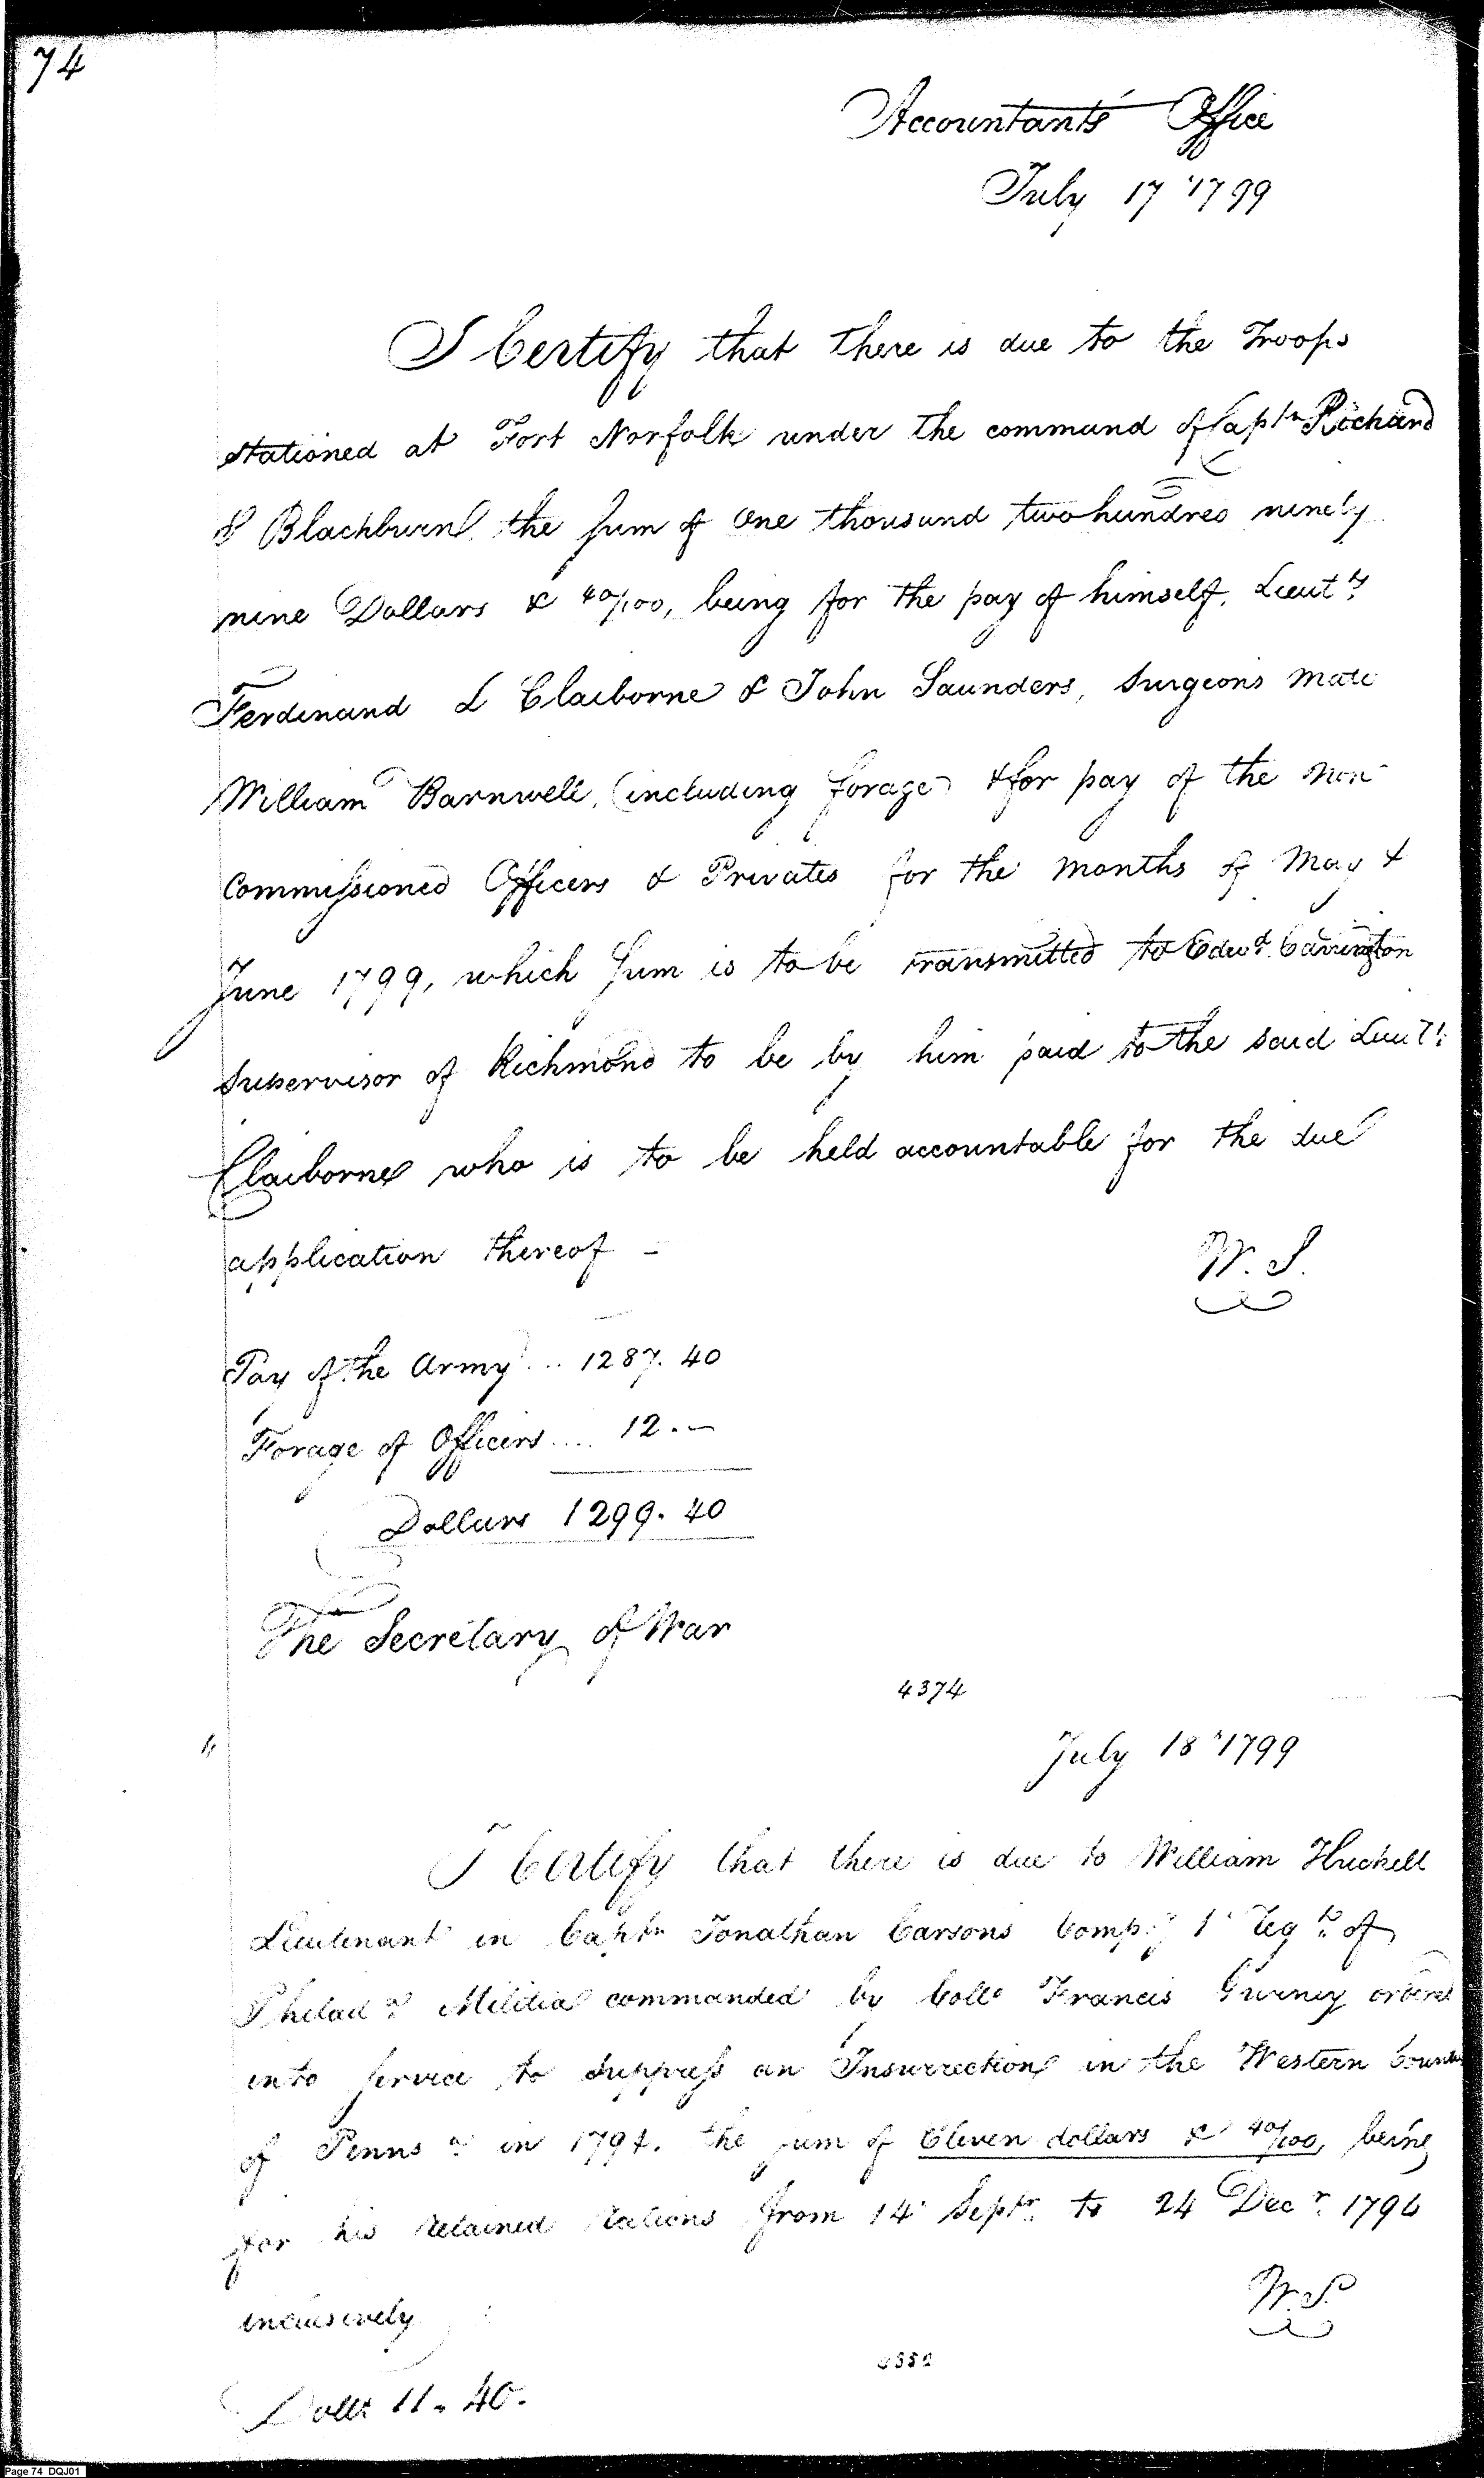 74
Accountants Office
July 17 1799
I Certify that there is due to the Troops
stationed at Fort Norfolk under the command of Captn Richard
S Blackburn the sum of One thousand two hundred ninety
nine Dollars & 40/100, being for the pay of himself, Lieuts
Ferdinand L Claiborne & John Saunders, Surgeons Mate
William Barnwell, (including forage) & for pay of the Non
Commissioned Officers & Privates for the Months of May &
June 1799, which sum is to be transmitted to Edwd Carrington
Supervisor of Richmond to be by him paid to the said Lieut
Claiborne who is to be held accountable for the due
application thereof —
W. S.
Pay of the Army ... 1287. 40
Forage of Officers .... 12. —
Dollars 1299. 40
The Secretary of War
4374
July 18 1799
I Certify that there is due to William Huckell
Lieutenant in Captn Jonathan Carsons Compy 1 Regt of
Philada Militia commanded by Collo Francis Gurney ordered
into service to suppress an Insurrection in the Western
of Penna in 1794. the sum of Eleven dollars & 40/100, being
for his retained Rations from 14 Septr to 24 Decr 1794
inclusively
W. S.
Dolls 11. 40.
Page 74 DQJ01